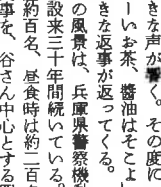 きな声が響く。その度に
ーいお茶、醬油はそこよ
きな返事が返ってくる。
の風景は、兵庫県警察機
設来三十年間続いている。
約百名、昼食時は約二百名
事を、谷さん中心とする